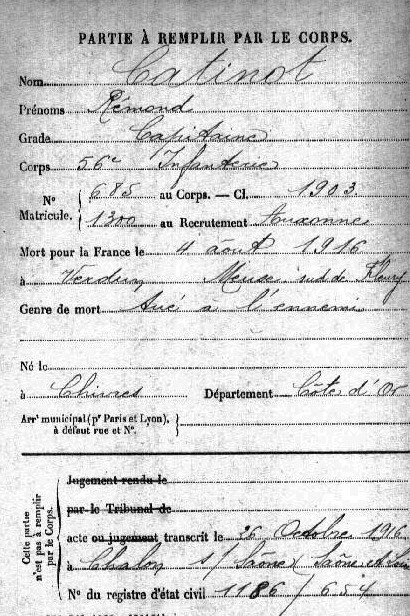 PARTIE À REMPLIR PAR LE CORPS.
Nom Catinot
Prénoms Rémond
Grade Capitaine
Corps 56e Infanterie
N° Matricule. { 685 au Corps. — Cl. 1903
1300 au Recrutement Auxonne
Mort pour la France le 4 août 1916
à Verdun Meuse sud de Fleury
Genre de mort Tué à l'ennemi
Né le
à Département Côte d'Or
Arrt municipal (pr Paris et Lyon), à défaut rue et N°. }
Cette partie n'est pas à remplir par le Corps.
Jugement rendu le
par le Tribunal de
acte ou jugement transcrit le 26 Octobre 1916
à Chalon s/ Saône Saône et Loire
N° du registre d'état civil 1186 / 654